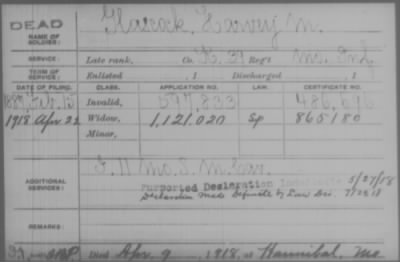 DEAD
Glascock, Harvey M.
NAME OF SOLDIER:
SERVICE: Late rank, Co. K. 39 Reg't Mo. Inf
TERM OF SERVICE: Enlisted , 1 Discharged , 1
DATE OF FILING. CLASS. APPLICATION NO. LAW. CERTIFICATE NO.
1887 Feb. 15 Invalid, 597,833 486,696
1918 Apr 22 Widow, 1,121,020 Sp 865180
Minor,
F. 11 Mo. S. M. Cav.
ADDITIONAL SERVICES: Purported Declaration 5/27/18
Declaration Made Definite by Law Div. 7/22/18
REMARKS:
Died Apr. 9, 1918, at Hannibal, Mo